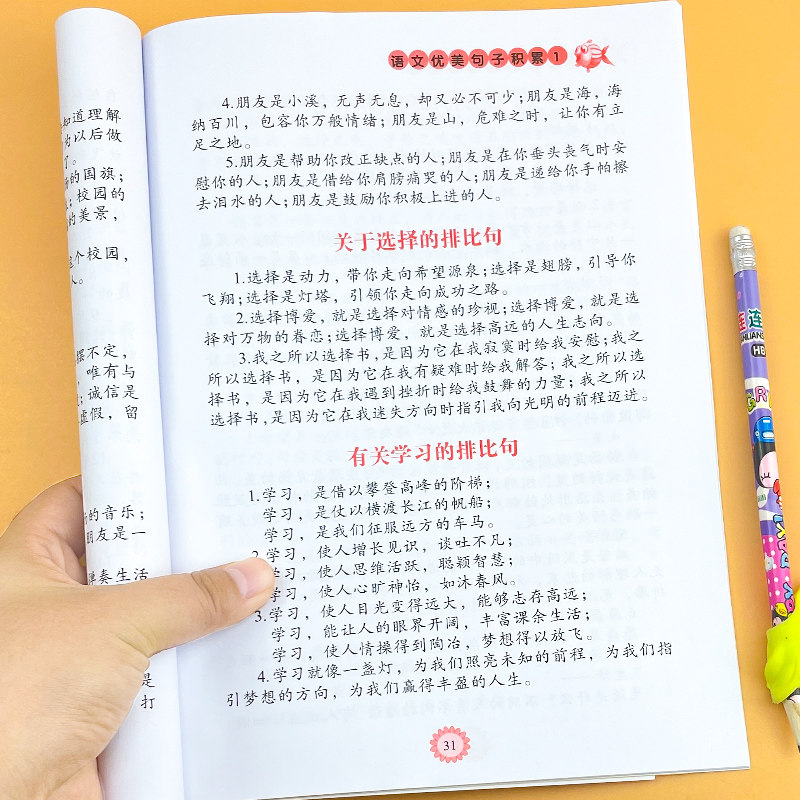 知道理解
为以后做
了。
的国旗；
校园的
的美景，
个校园，
人。
摆不定，
唯有与
诚信是
虚假，留
的音乐；
朋友是一
弹奏生活
是
打
语文优美句子积累1
4.朋友是小溪，无声无息，却又必不可少；朋友是海，海
纳百川，包容你万般情绪；朋友是山，危难之时，让你有立
足之地。
5.朋友是帮助你改正缺点的人；朋友是在你垂头丧气时安
慰你的人；朋友是借给你肩膀痛哭的人；朋友是递给你手帕擦
去泪水的人；朋友是鼓励你积极上进的人。
关于选择的排比句
1.选择是动力，带你走向希望源泉；选择是翅膀，引导你
飞翔；选择是灯塔，引领你走向成功之路。
2.选择博爱，就是选择对情感的珍视；选择博爱，就是选
择对万物的眷恋；选择博爱，就是选择高远的人生志向。
3.我之所以选择书，是因为它在我寂寞时给我安慰；我之
所以选择书，是因为它在我有疑难时给我解答；我之所以选
择书，是因为它在我遇到挫折时给我鼓舞的力量；我之所以
选择书，是因为它在我迷失方向时指引我向光明的前程迈进。
有关学习的排比句
1.学习，是借以攀登高峰的阶梯；
学习，是仗以横渡长江的帆船；
学习，是我们征服远方的车马。
2.学习，使人增长见识，谈吐不凡；
学习，使人思维活跃，聪颖智慧；
学习，使人心旷神怡，如沐春风。
3.学习，使人目光变得远大，能够志存高远；
学习，能让人的眼界开阔，丰富课余生活；
学习，使人情操得到陶冶，梦想得以放飞。
4.学习就像一盏灯，为我们照亮未知的前程，为我们指
引梦想的方向，为我们赢得丰盈的人生。
31
连
HB